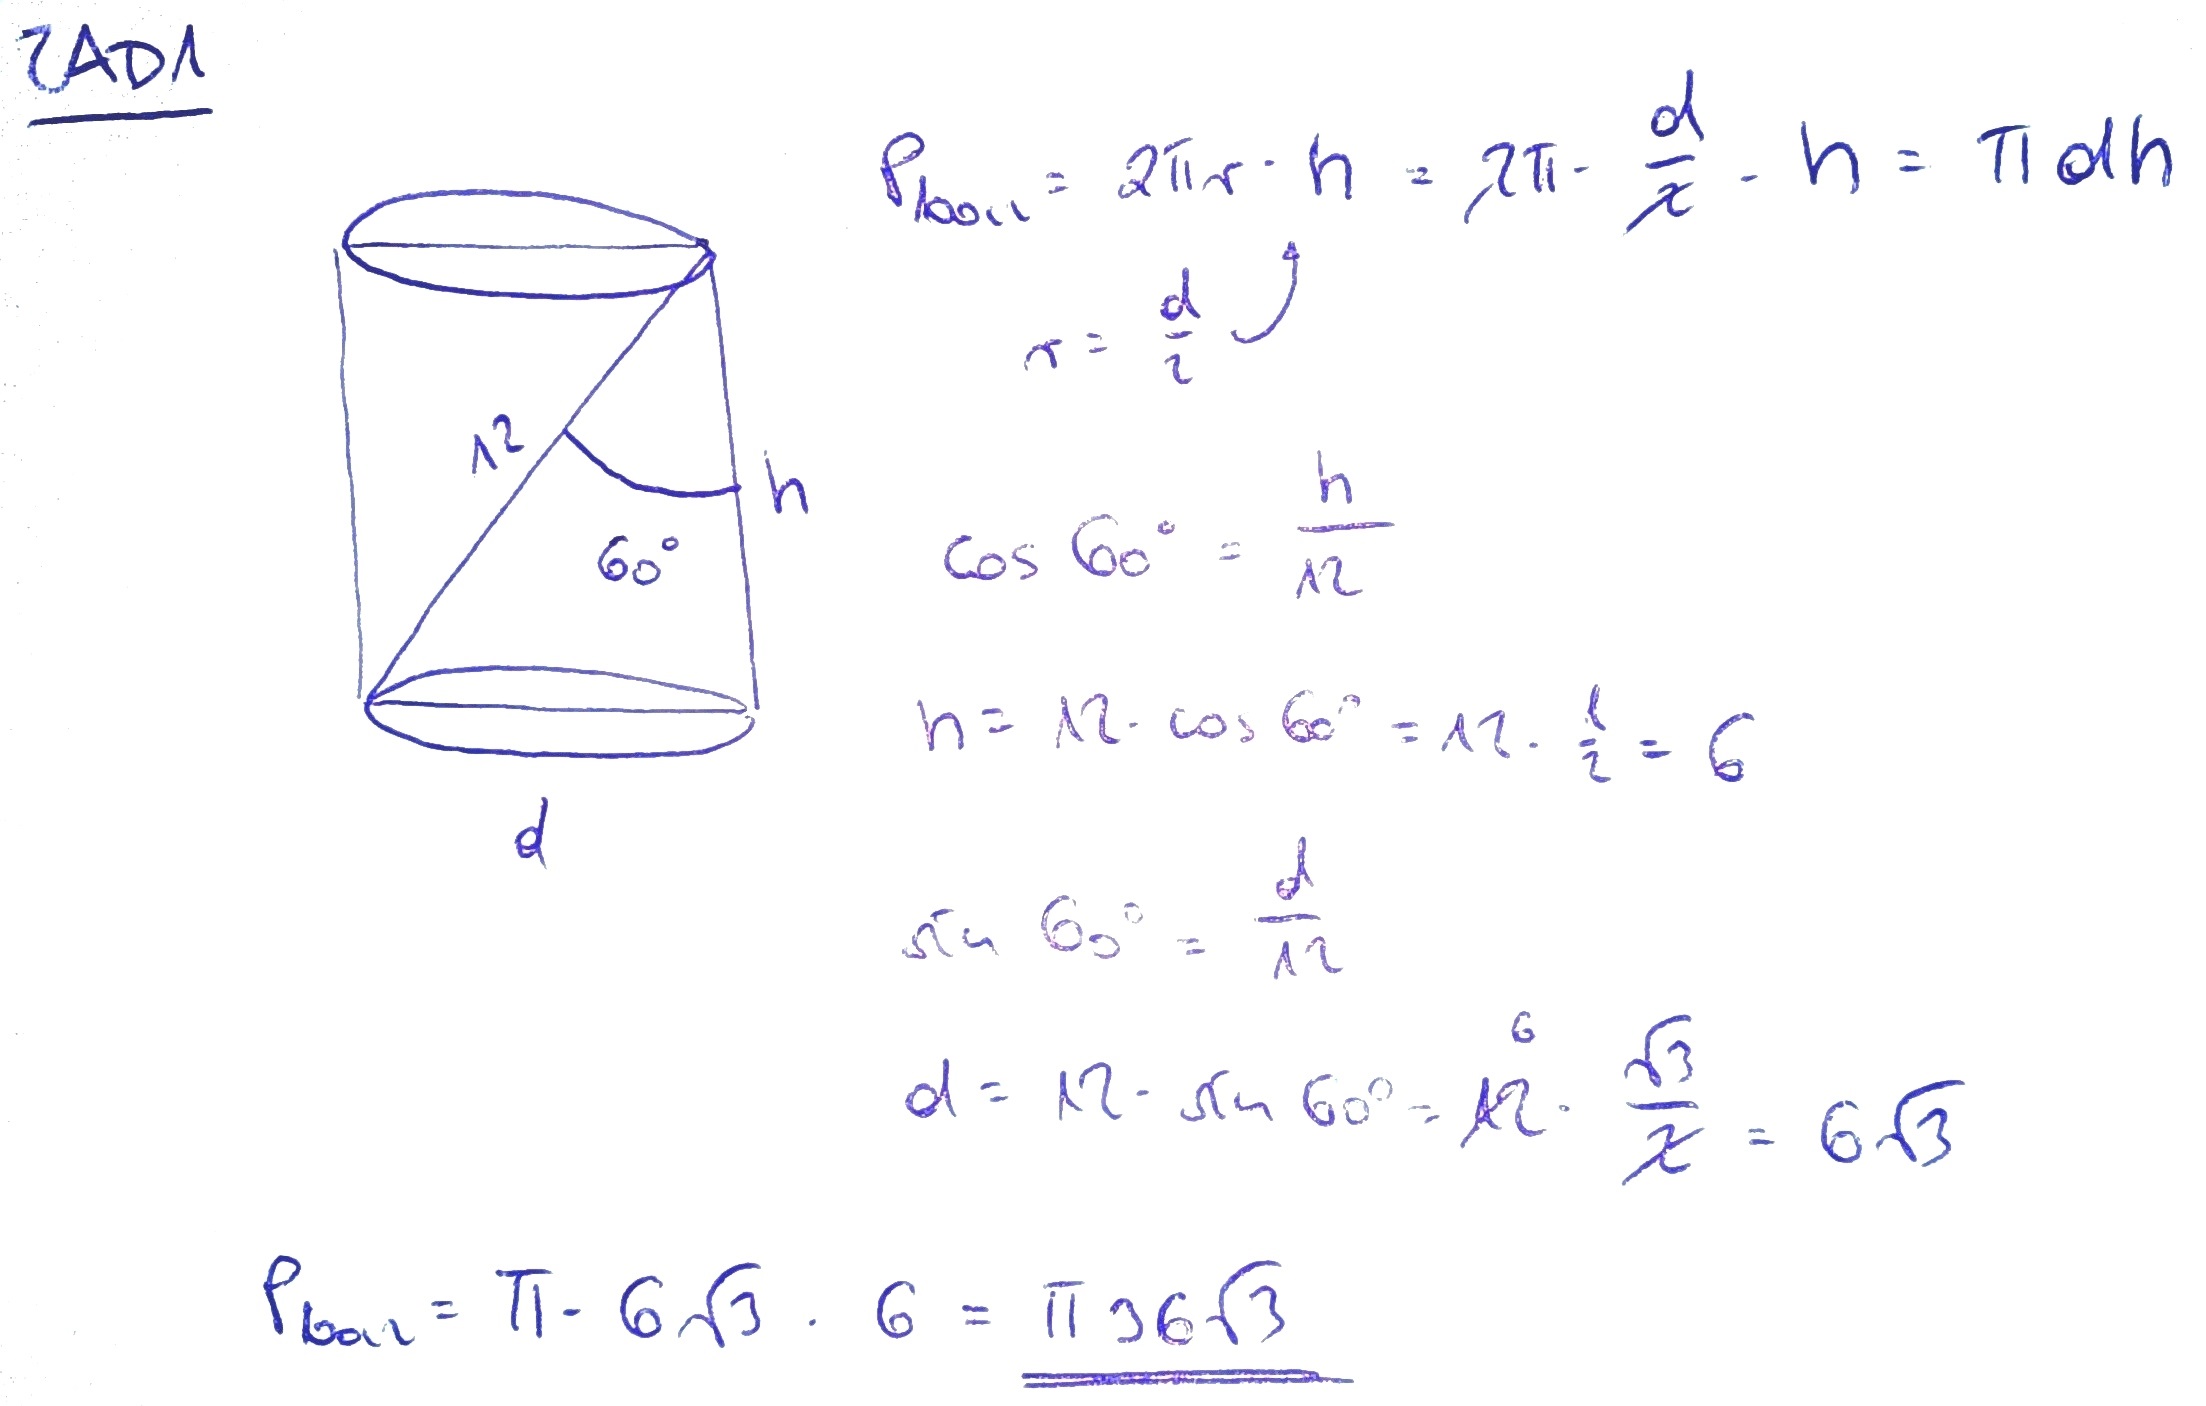 ZAD1
P_bocz = 2πr · h = 2π · d/2 · h = πdh
r = d/2
12
h
60°
cos 60° = h/12
h = 12 · cos 60° = 12 · 1/2 = 6
d
sin 60° = d/12
6
d = 12 · sin 60° = 12 · √3/2 = 6√3
P_bocz = π · 6√3 · 6 = π36√3